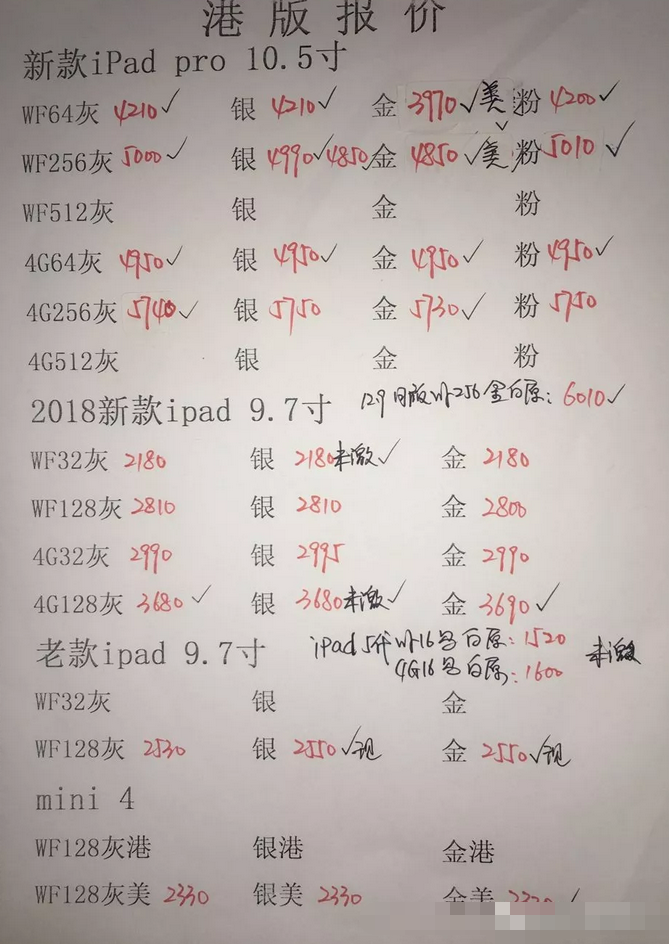 港版报价
新款iPad pro 10.5寸
WF64灰 4210✓ 银 4210✓ 金 3970✓美 粉 4200✓
WF256灰 5000✓ 银 4990✓4850 金 4850✓美 粉 5010✓
WF512灰 银 金 粉
4G64灰 4950✓ 银 4950✓ 金 4950✓ 粉 4950✓
4G256灰 5740✓ 银 5750 金 5730✓ 粉 5750
4G512灰 银 金 粉
2018新款ipad 9.7寸 129 国版 wifi 256 金白原: 6010✓
WF32灰 2180 银 2180未激✓ 金 2180
WF128灰 2810 银 2810 金 2800
4G32灰 2990 银 2995 金 2990
4G128灰 3680✓ 银 3680未激✓ 金 3690✓
老款ipad 9.7寸 ipad 5代 wifi 16 白原: 1520 未激
4G16 白原: 1600
WF32灰 银 金
WF128灰 2530 银 2550✓现 金 2550✓现
mini 4
WF128灰港 银港 金港
WF128灰美 2330 银美 2330 金美